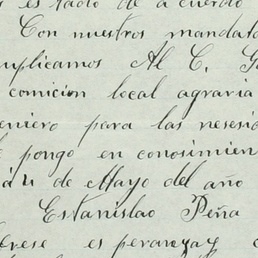 es tado de a cuerdo
Con nuestros mandata
uplicamos Al C. G
comicion local agraria
eniero para las nesesid
pongo en conosimien
de Mayo del año
Estanislao Peña
erese esperanza y